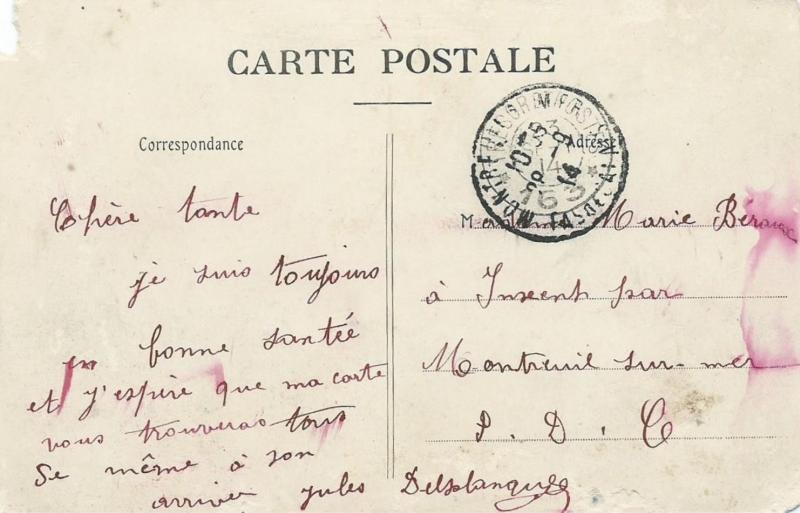 CARTE POSTALE
Correspondance
Adresse
Chère tante
je suis toujours
en bonne santée
et j'espère que ma carte
vous trouveras tous
Se même à son
arriver jules
Marie
à Inxent par
Montreuil sur-mer
P. D. C